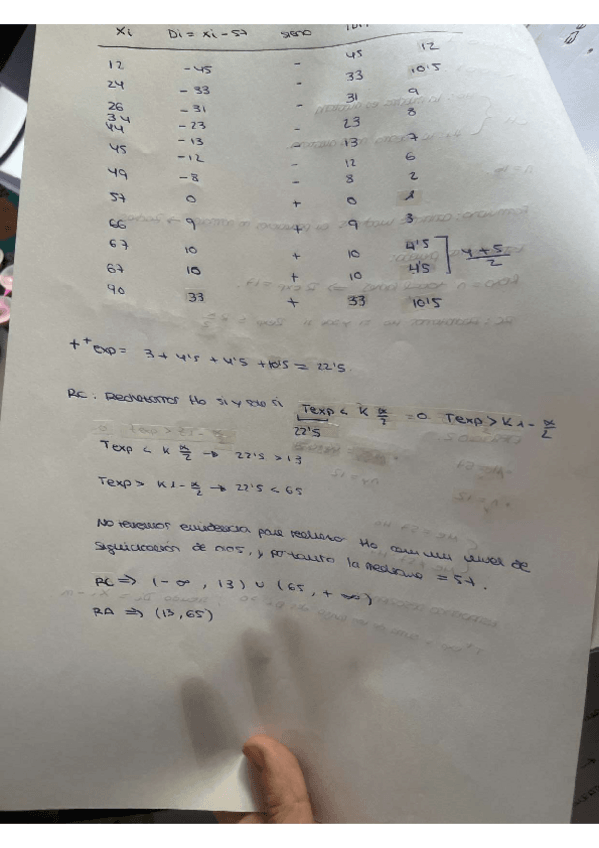 Xi Di = xi - 57 signo |Di|
12 -45 - 45 12
24 -33 - 33 10'5
26 -31 - 31 9
34 -23 - 23 8
44 -13 - 13 7
45 -12 - 12 6
49 -8 - 8 2
57 0 + 0 1
66 9 + 9 3
67 10 + 10 4'5 4+5
67 10 + 10 4'5 2
90 33 + 33 10'5
T+exp = 3 + 4'5 + 4'5 + 10'5 = 22'5.
RC. Rechazamos Ho si y solo si Texp < K α/2 o Texp > K1 - α/2
22'5
Texp < K α/2 → 22'5 > 13
Texp > K1 - α/2 → 22'5 < 65
No tenemos evidencia para rechazar Ho con un nivel de
significación de 0'05, y por tanto la mediana = 57.
RC ⇒ (-∞, 13) ∪ (65, +∞)
RA ⇒ (13, 65)